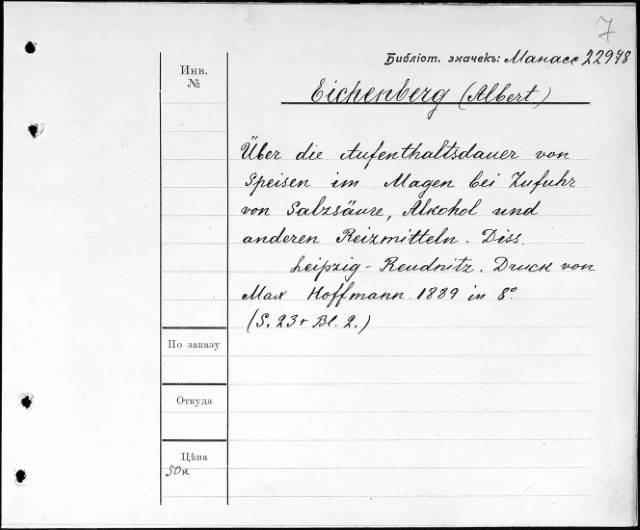 7
Библіот. значекъ: Манасс 22948
Инв.
№
Eichenberg (Albert)
Über die Aufenthaltsdauer von
Speisen im Magen bei Zufuhr
von Salzsäure, Alkohol und
anderen Reizmitteln. Diss.
Leipzig-Reudnitz. Druck von
Max Hoffmann. 1889 in 8°.
(S. 23 + Bl. 2.)
По заказу
Откуда
Цѣна
50к